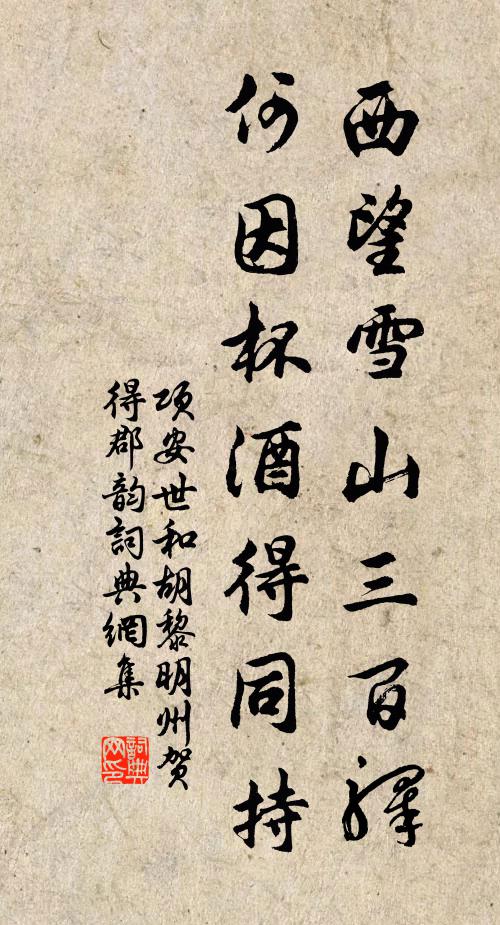 西望雪山三百驛
何因杯酒得同持
項安世和胡黎明州賀
得郡韵詞典網集
詞典網印